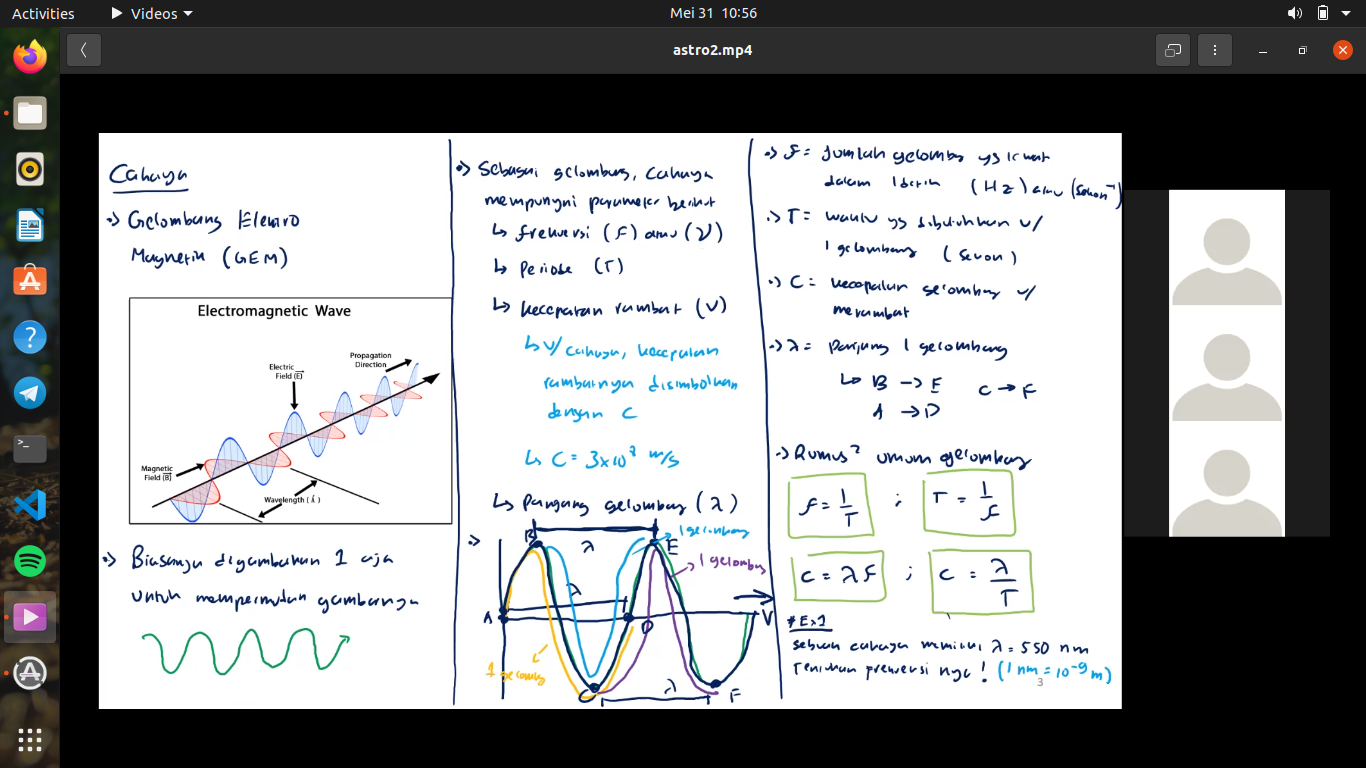 Activities
Videos
Mei 31 10:56
astro2.mp4
Cahaya
Gelombang Elektro
Magnetik (GEM)
Electromagnetic Wave
Propagation
Direction
Electric
Field (E)
Magnetic
Field (B)
Wavelength (λ)
Biasanya digambarkan 1 aja
untuk mempermudah gambarnya
Sebagai gelombang, cahaya
mempunyai parameter berikut
↳ frekuensi (f) atau (ν)
↳ Periode (T)
↳ kecepatan rambat (v)
↳ u/ cahaya, kecepatan
rambatnya disimbolkan
dengan c
↳ C = 3x10⁸ m/s
↳ Panjang gelombang (λ)
B
λ
E
1 gelombang
1 gelombang
λ
A
D
V
1 gelombang
C
λ
F
f = Jumlah gelombang yg lewat
dalam 1 detik (Hz) atau (sekon⁻¹)
T = waktu yg dibutuhkan u/
1 gelombang (sekon)
C = kecepatan gelombang u/
merambat
λ = panjang 1 gelombang
↳ B → E C → F
A → D
Rumus² umum gelombang
f = 1/T ; T = 1/f
C = λ f ; C = λ/T
#Ex1
Sebuah cahaya memiliki λ = 550 nm
Tentukan frekuensi nya ! (1 nm = 10⁻⁹ m)
3